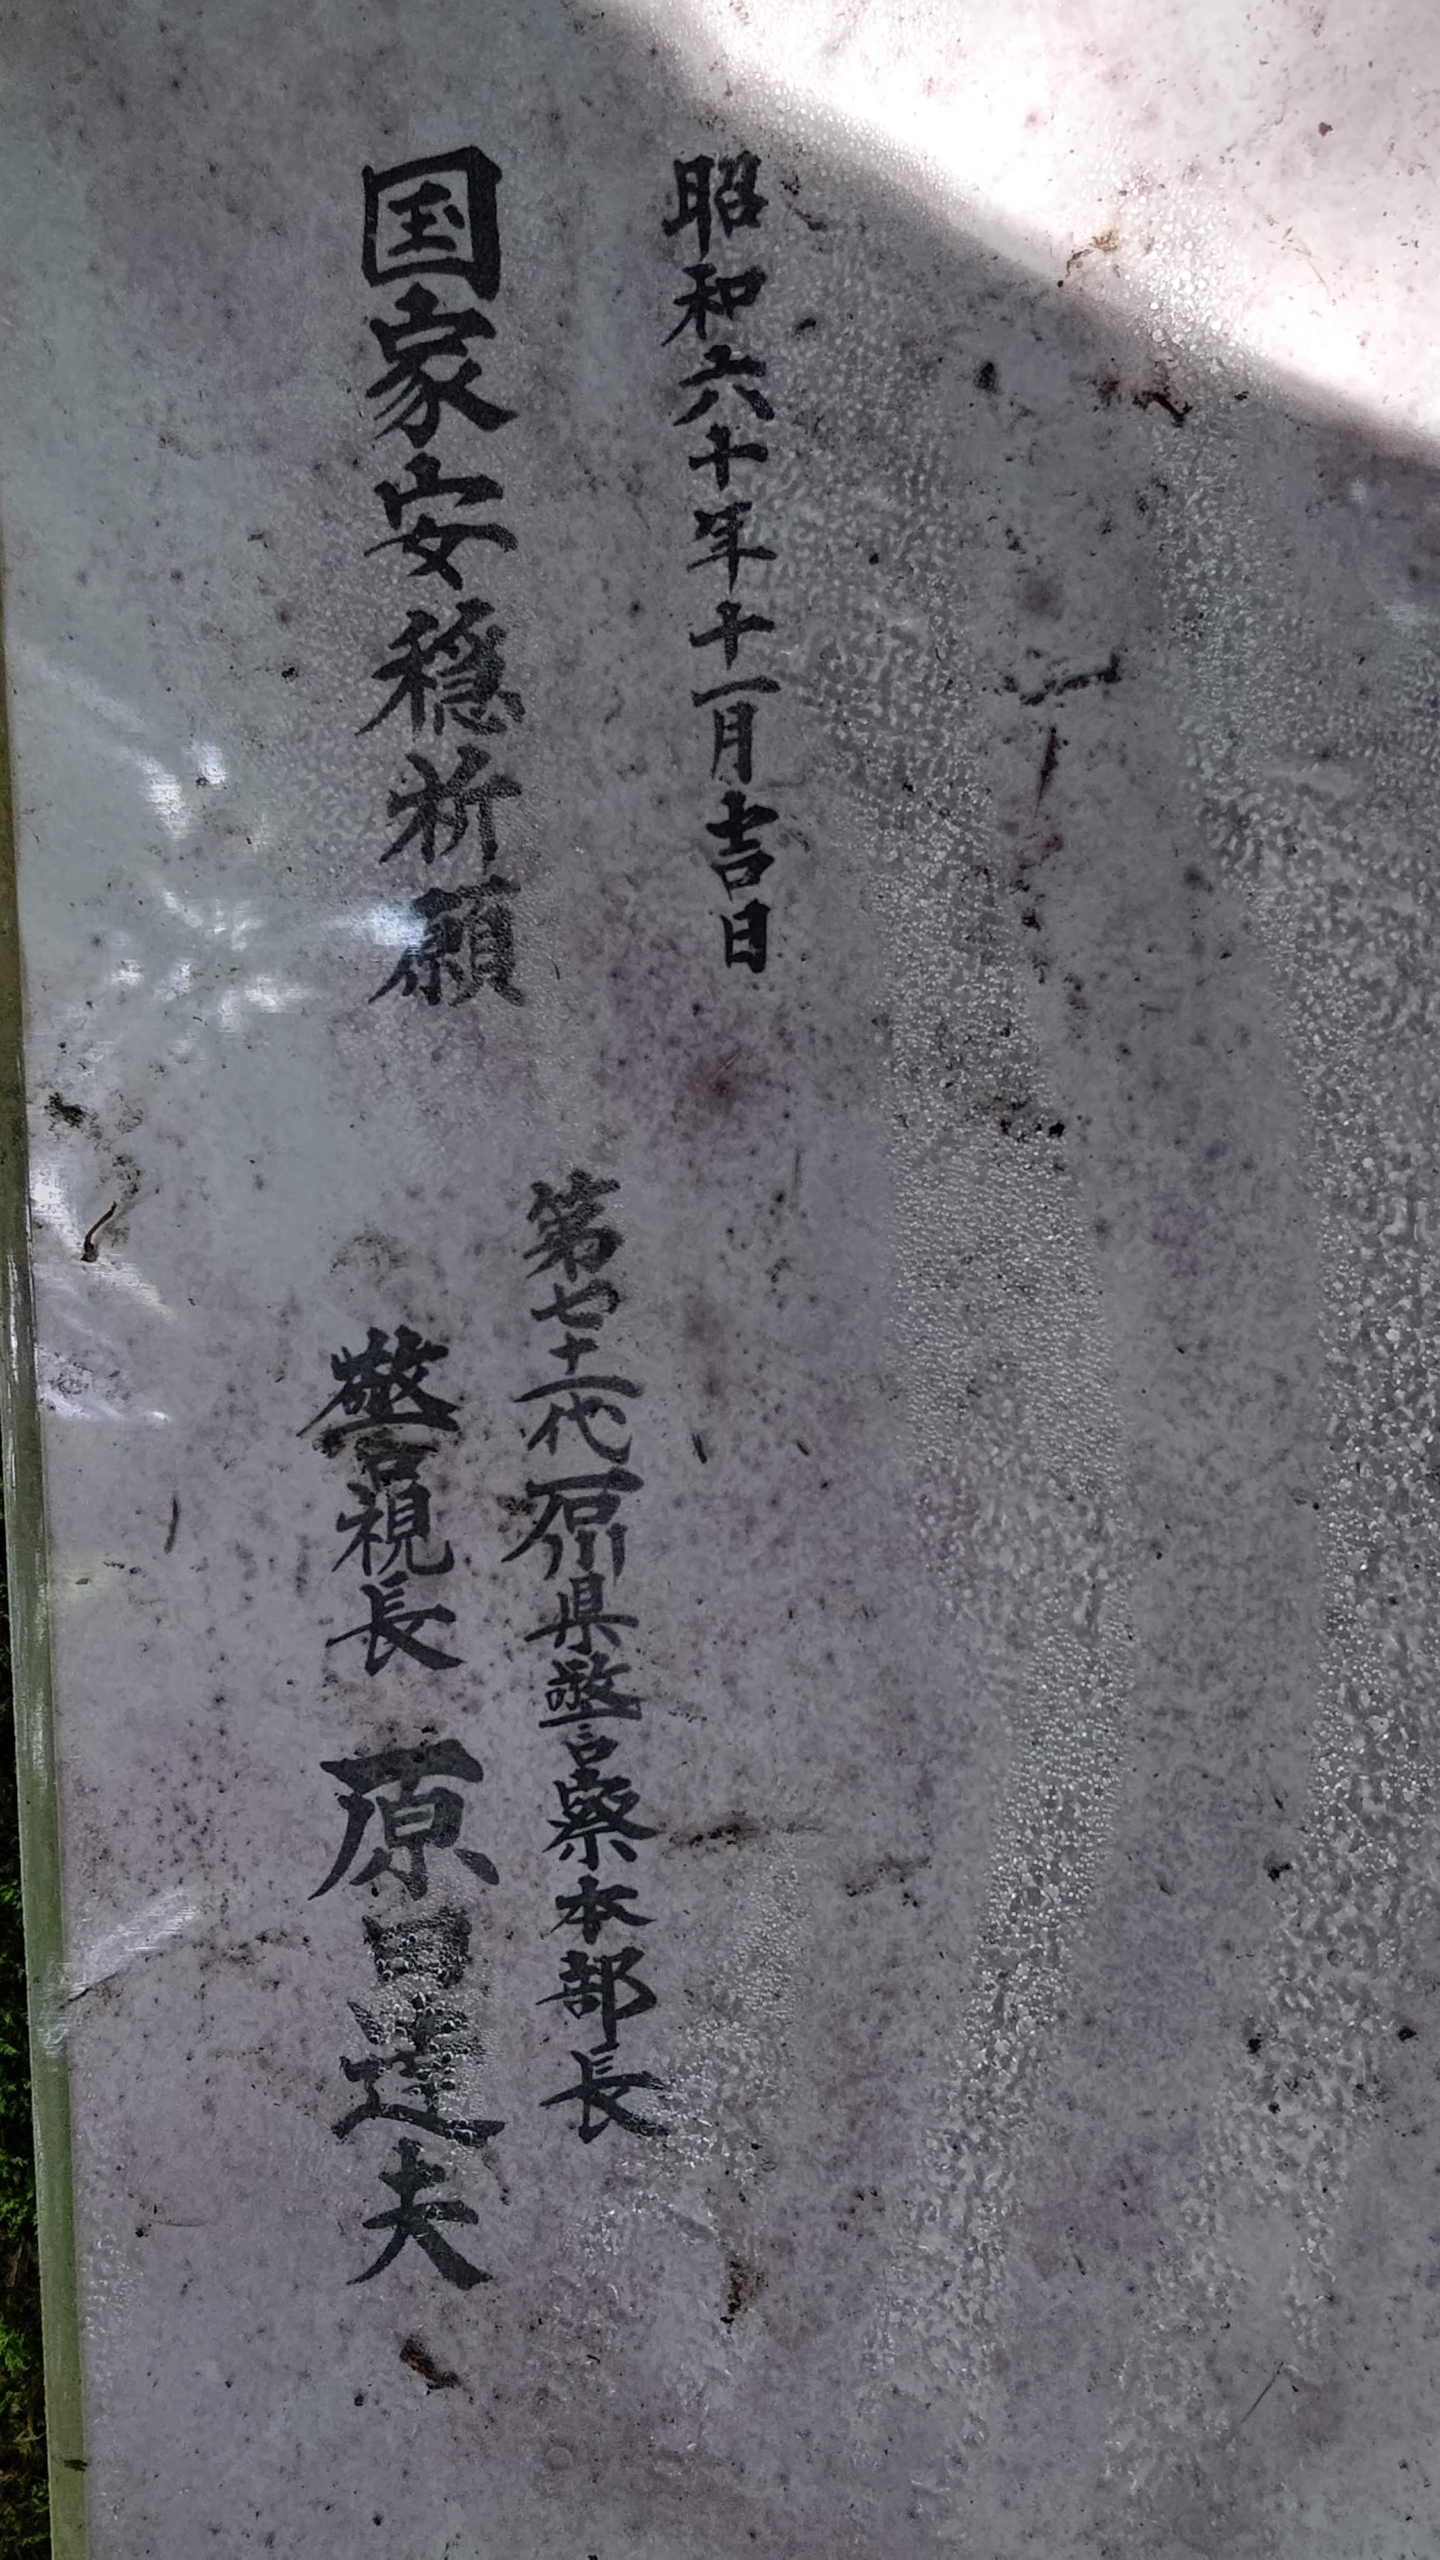 昭和六十年十一月吉日
国家安穏祈願
第七十二代石川県警察本部長
警視長 原田達夫